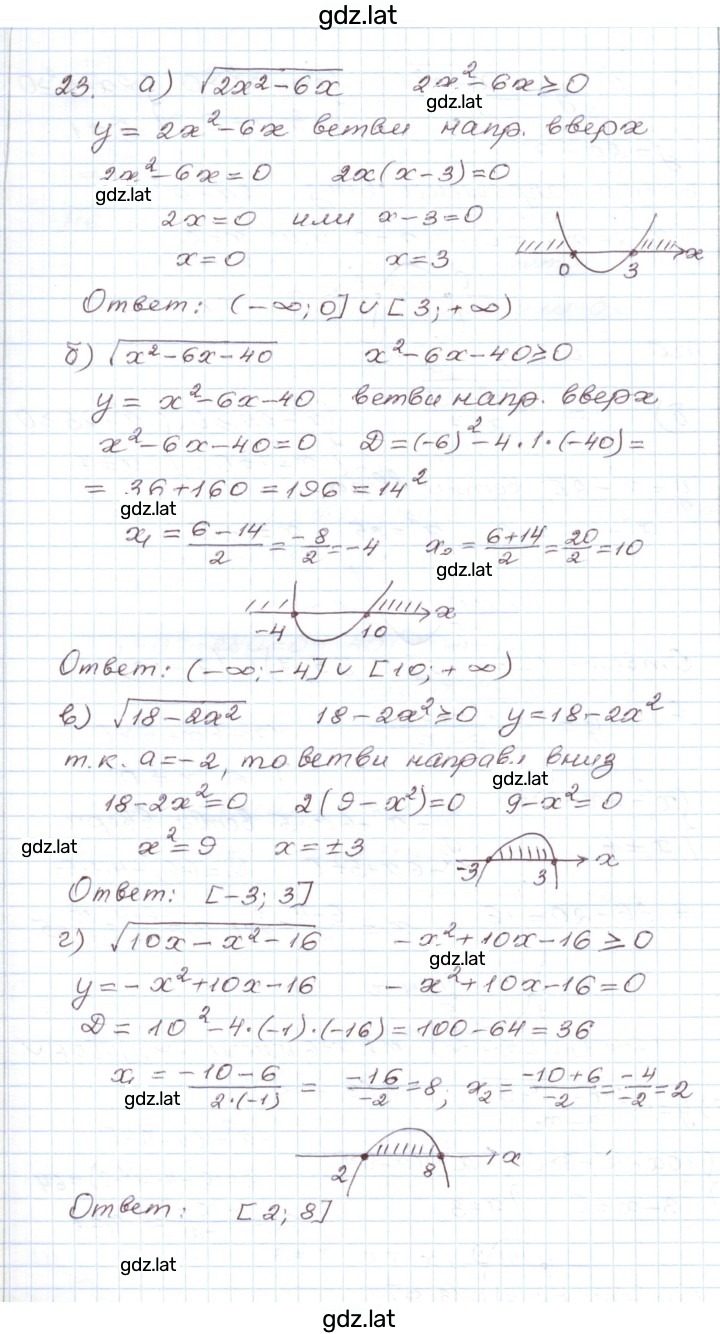 gdz.lat
23. а) √(2x²-6x) 2x²-6x≥0
gdz.lat
y = 2x²-6x ветви напр. вверх
2x²-6x=0 2x(x-3)=0
gdz.lat
2x=0 или x-3=0
x=0 x=3
0 3 x
Ответ: (-∞; 0] ∪ [3; +∞)
б) √(x²-6x-40) x²-6x-40≥0
y = x²-6x-40 ветви напр. вверх
x²-6x-40=0 D=(-6)²-4·1·(-40)=
= 36+160=196=14²
gdz.lat
x₁ = (6-14)/2 = -8/2 = -4 x₂ = (6+14)/2 = 20/2 = 10
gdz.lat
-4 10 x
Ответ: (-∞; -4] ∪ [10; +∞)
в) √(18-2x²) 18-2x²≥0 y=18-2x²
т.к. a=-2, то ветви направл. вниз
gdz.lat
18-2x²=0 2(9-x²)=0 9-x²=0
gdz.lat x²=9 x=±3
-3 3 x
Ответ: [-3; 3]
г) √(10x-x²-16) -x²+10x-16≥0
gdz.lat
y=-x²+10x-16 -x²+10x-16=0
D = 10²-4·(-1)·(-16)=100-64=36
x₁ = (-10-6)/(2·(-1)) = -16/-2 = 8; x₂ = (-10+6)/-2 = -4/-2 = 2
gdz.lat
2 8 x
Ответ: [2; 8]
gdz.lat
gdz.lat